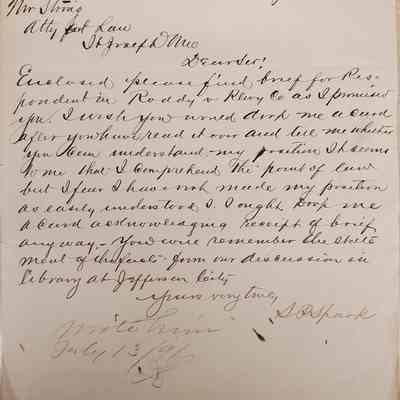 Mr Strong
Atty at Law
St Joseph Mo
Dear Sir!
Enclosed please find brief for Res-
pondent in Roddy v Ry Co as I promised
you. I wish you would drop me a card
after you have read it over and tell me whether
you can understand my position It seems
to me that I comprehend the point of law
but I fear I have not made my position
as easily understood as I ought Drop me
a card acknowledging receipt of brief
any way. – You will remember the state
ment of the facts from our discussion in
library at Jefferson City
Yours very truly
wrote him
July 13